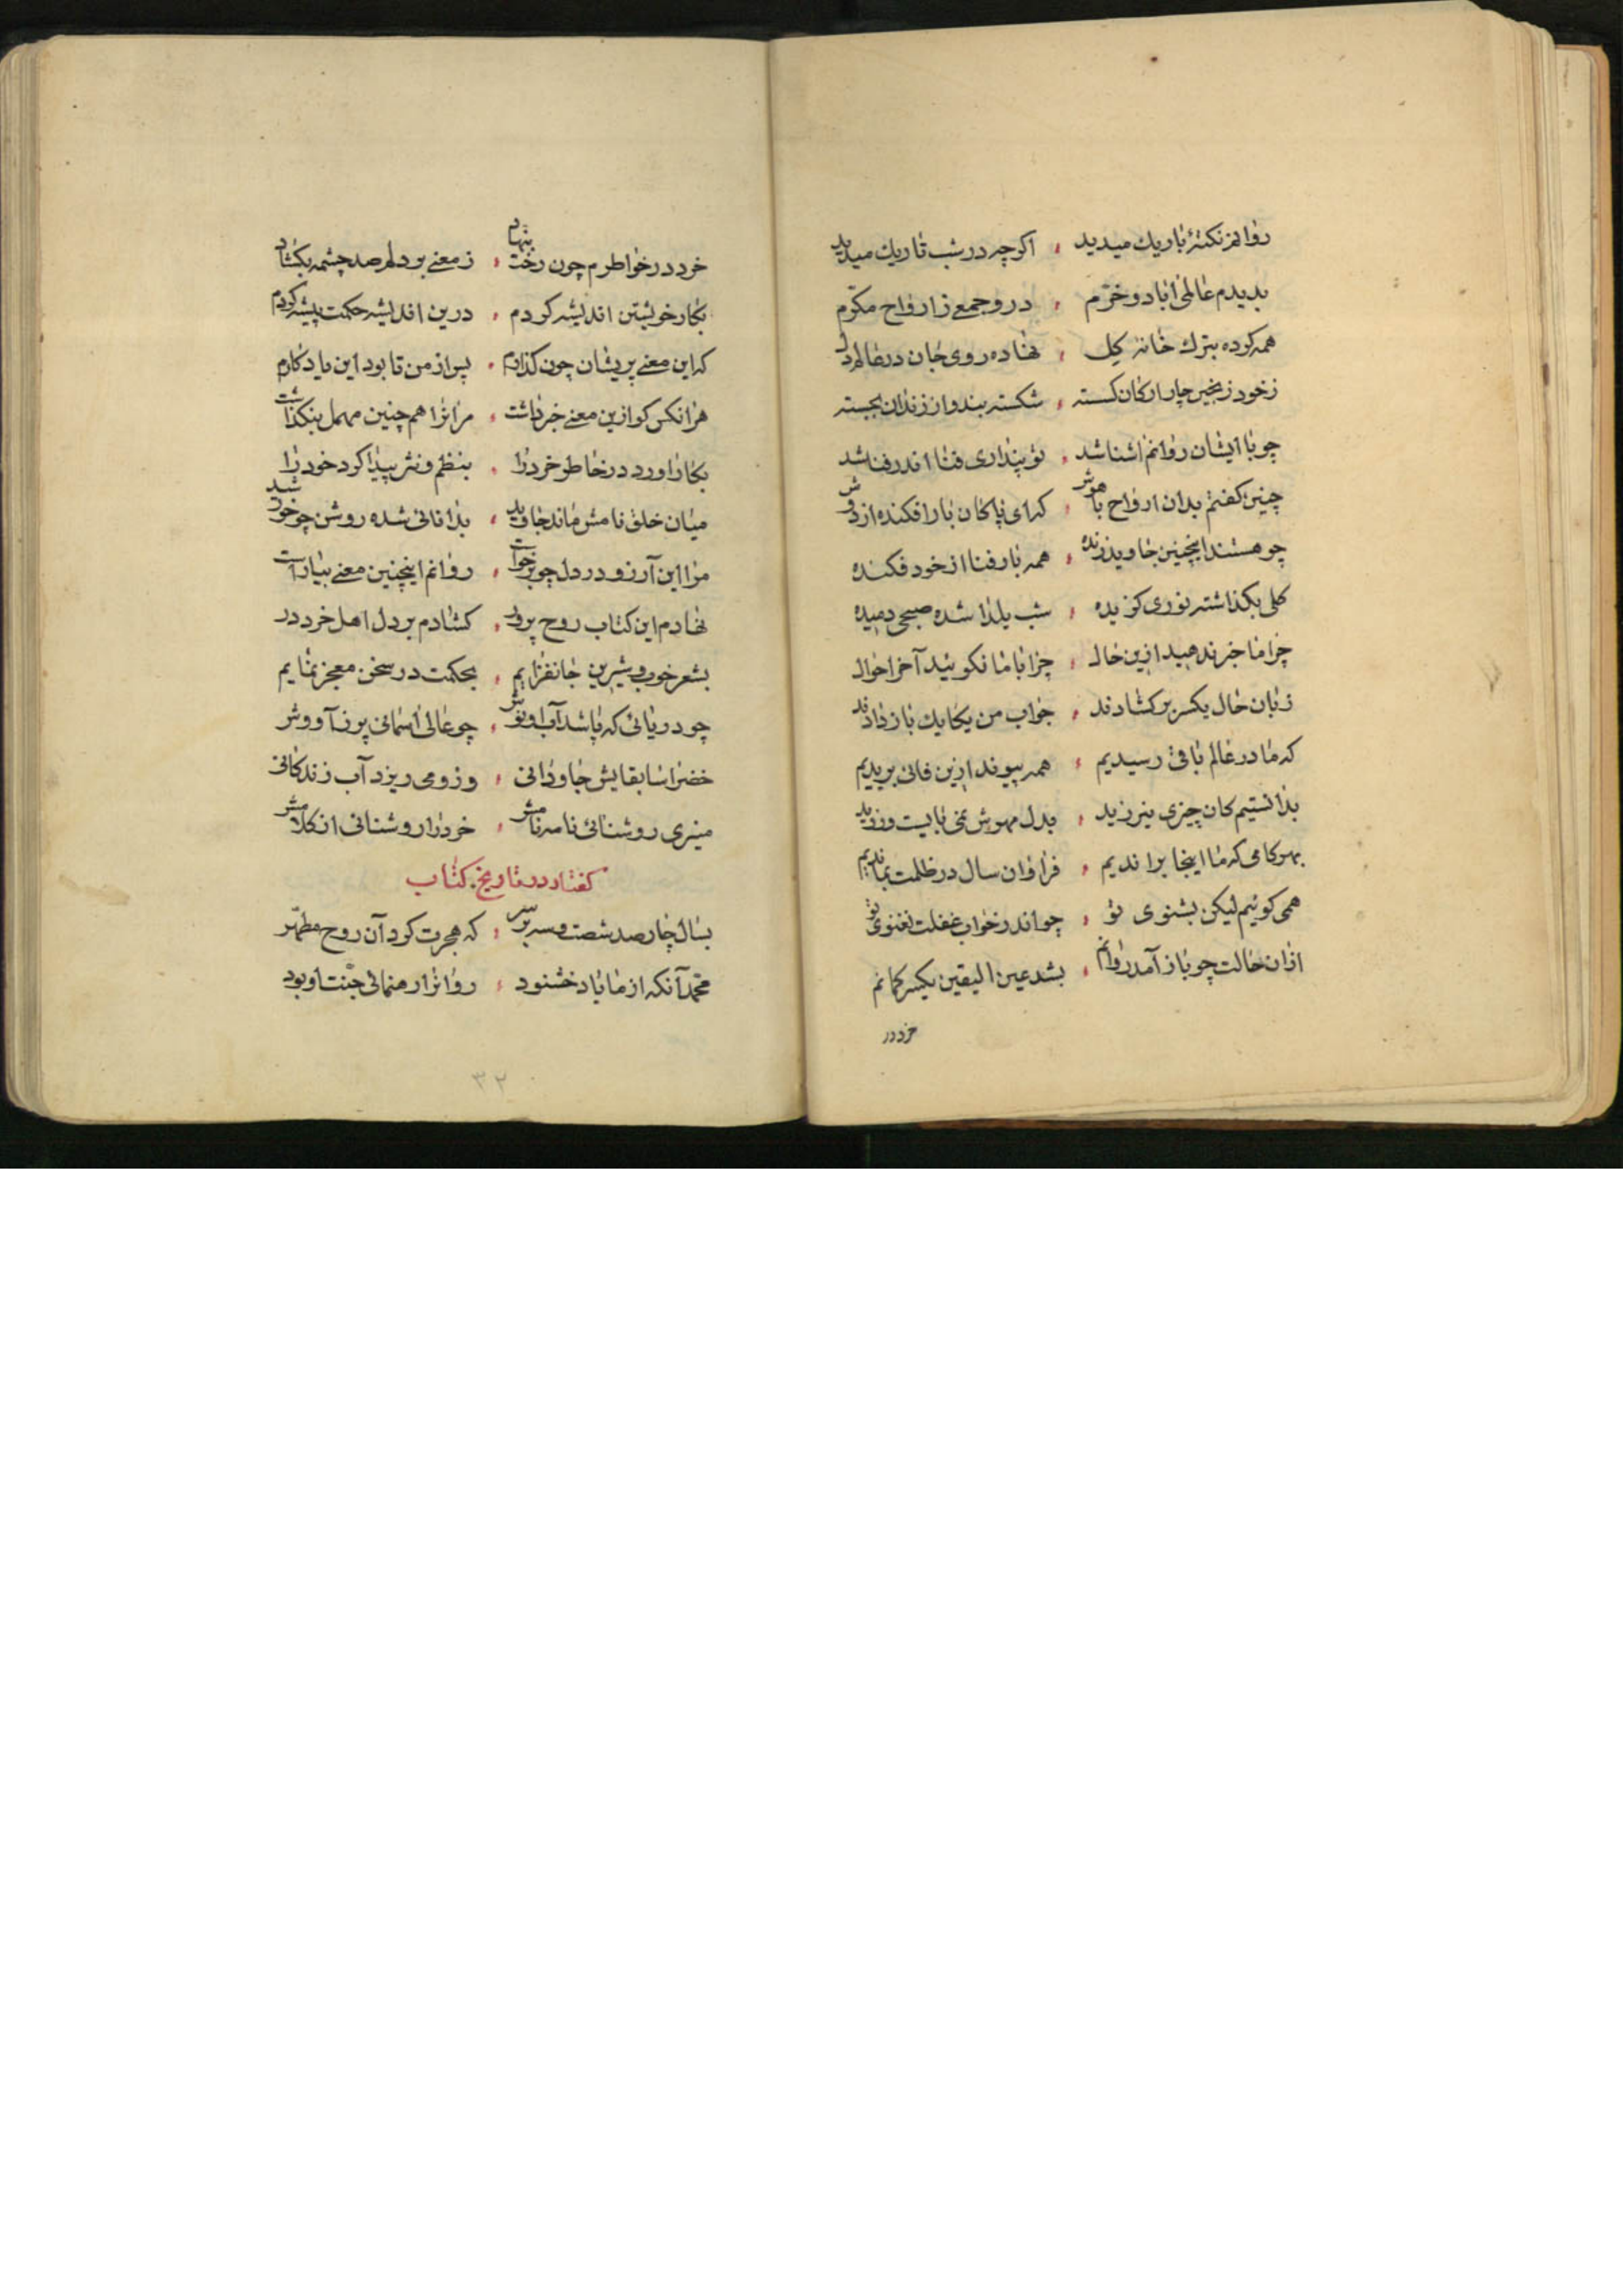 روانم نکتهٔ باریك میدید ، اکرچه در شب تاریك میدید
بدیدم عالمی اباد و خرّم ، درو جمعے ز ارواح مکرّم
همه کرده بترك خانهٔ کِل ، نهاده روی جان در عالم دل
ز خود زنجیر چار ارکان کسسته ، شکسته بند و از زندان بجسته
چو با ایشان روانم اشنا شد ، تو پنداری فنا اندر فنا شد
چنین کفتم بدان ارواح با هوش ، که ای پاکان بار افکنده از دوش
چو هستند اینچنین جاوید زنده ، همه بار فنا از خود فکنده
کلی بکذاشته نوری کزیده ، شب یلدا شده صبحی دمیده
چرا ما خبر ندهید ازین حال ، چرا با ما نکوئید آخر احوال
زبان حال یکسر بر کشادند ، جواب من یکایك باز دادند
که ما در عالم باقی رسیدیم ، همه پیوند ازین فانی بریدیم
بدانستیم کان چیزی نیرزید ، بدل مهرش نمی بایست ورزید
بهر کامی که ما اینجا براندیم ، فراوان سال در ظلمت بماندیم
همی کوئیم لیکن نشنوی تو ، چو اندر خواب غفلت نغنوی تو
ازان حالت چو باز آمد روانم ، بشد عین الیقین یکسر کمانم
خرد در
خرد در خواطرم چون رخت بنهاد ، ز معنے بر دلم صد چشمه بکشاد
بکار خویشتن اندیشه کردم ، درین اندیشه حکمت پیشه کردم
که این معنے پریشان چون کذارم ، پس از من تا بود این یادکارم
هر انکس کو ازین معنے خبر داشت ، مر انرا هم چنین مهمل بنکذاشت
بکار اورد در خاطر خرد را ، بنظم و نثر پیدا کرد خود را
میان خلق نامش ماند جاوید ، بدانائی شده روشن چو خورشید
مرا این آرزو در دل چو برخواست ، روانم اینچنین معنے بیاراست
نهادم این کتاب روح پرور ، کشادم بر دل اهل خرد در
بشعر خوب و شیرین جانفزایم ، بحکمت در سخن معجز نمایم
چو دریائی که باشد آب او نوش ، چو عالی اسمانی پر ز آووش
خضر اسا بقایش جاودانی ، وزو می ریزد آب زندکانی
منیری روشنائی نامه نامش ، خرد را روشنائی از کلامش
کفتار در تاریخ کتاب
بسال چار صد شصت و سه بر سر ، که هجرت کرد آن روح مطهّر
محمّد آنکه از ما باد خشنود ، روانرا رهنمائی جنّت او بود
۳۲